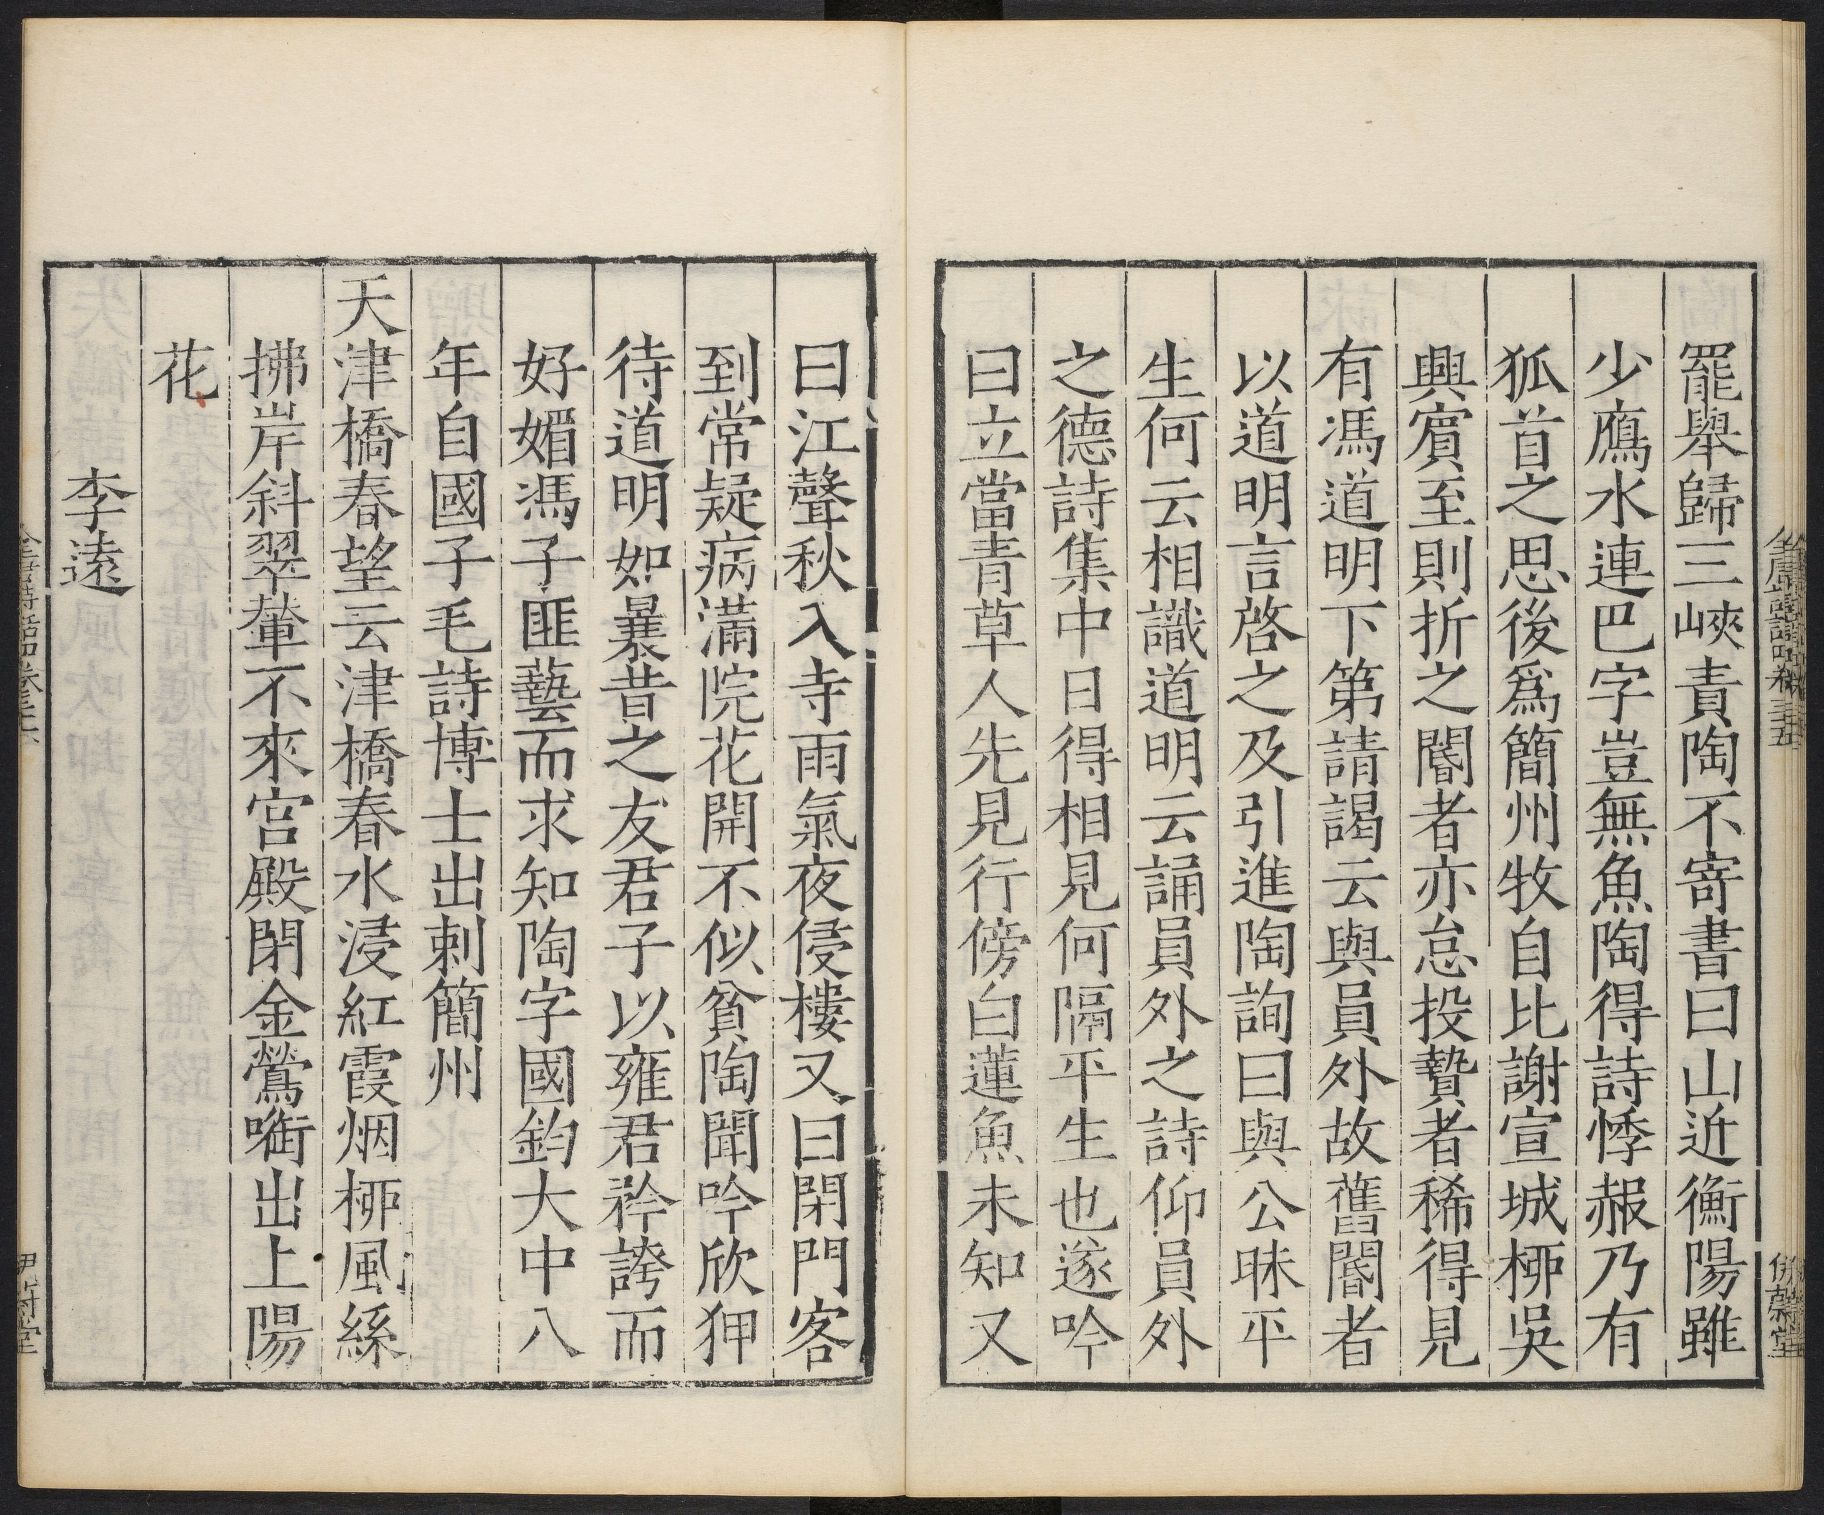 罷舉歸三峽責陶不寄書曰山近衡陽雖
少鴈水連巴字豈無魚陶得詩悸赧乃有
狐首之思後爲簡州牧自比謝宣城桺吳
興賔至則折之閽者亦怠投贄者稀得見
有馮道明下第請謁云與員外故舊閽者
以道明言啓之及引進陶詢曰與公昧平
生何云相識道明云誦員外之詩仰員外
之德詩集中日得相見何隔平生也遂吟
曰立當青草人先見行傍白蓮魚未知又
曰江聲秋入寺雨氣夜侵樓又曰閉門客
到常疑病滿院花開不似貧陶聞吟欣狎
待道明如曩昔之友君子以雍君矜誇而
好媚馮子匪藝而求知陶字國鈞大中八
年自國子毛詩博士出刺簡州
天津橋春望云津橋春水浸紅霞烟桺風絲
拂岸斜翠輦不來宮殿閉金鶯㗸出上陽
花
李遠